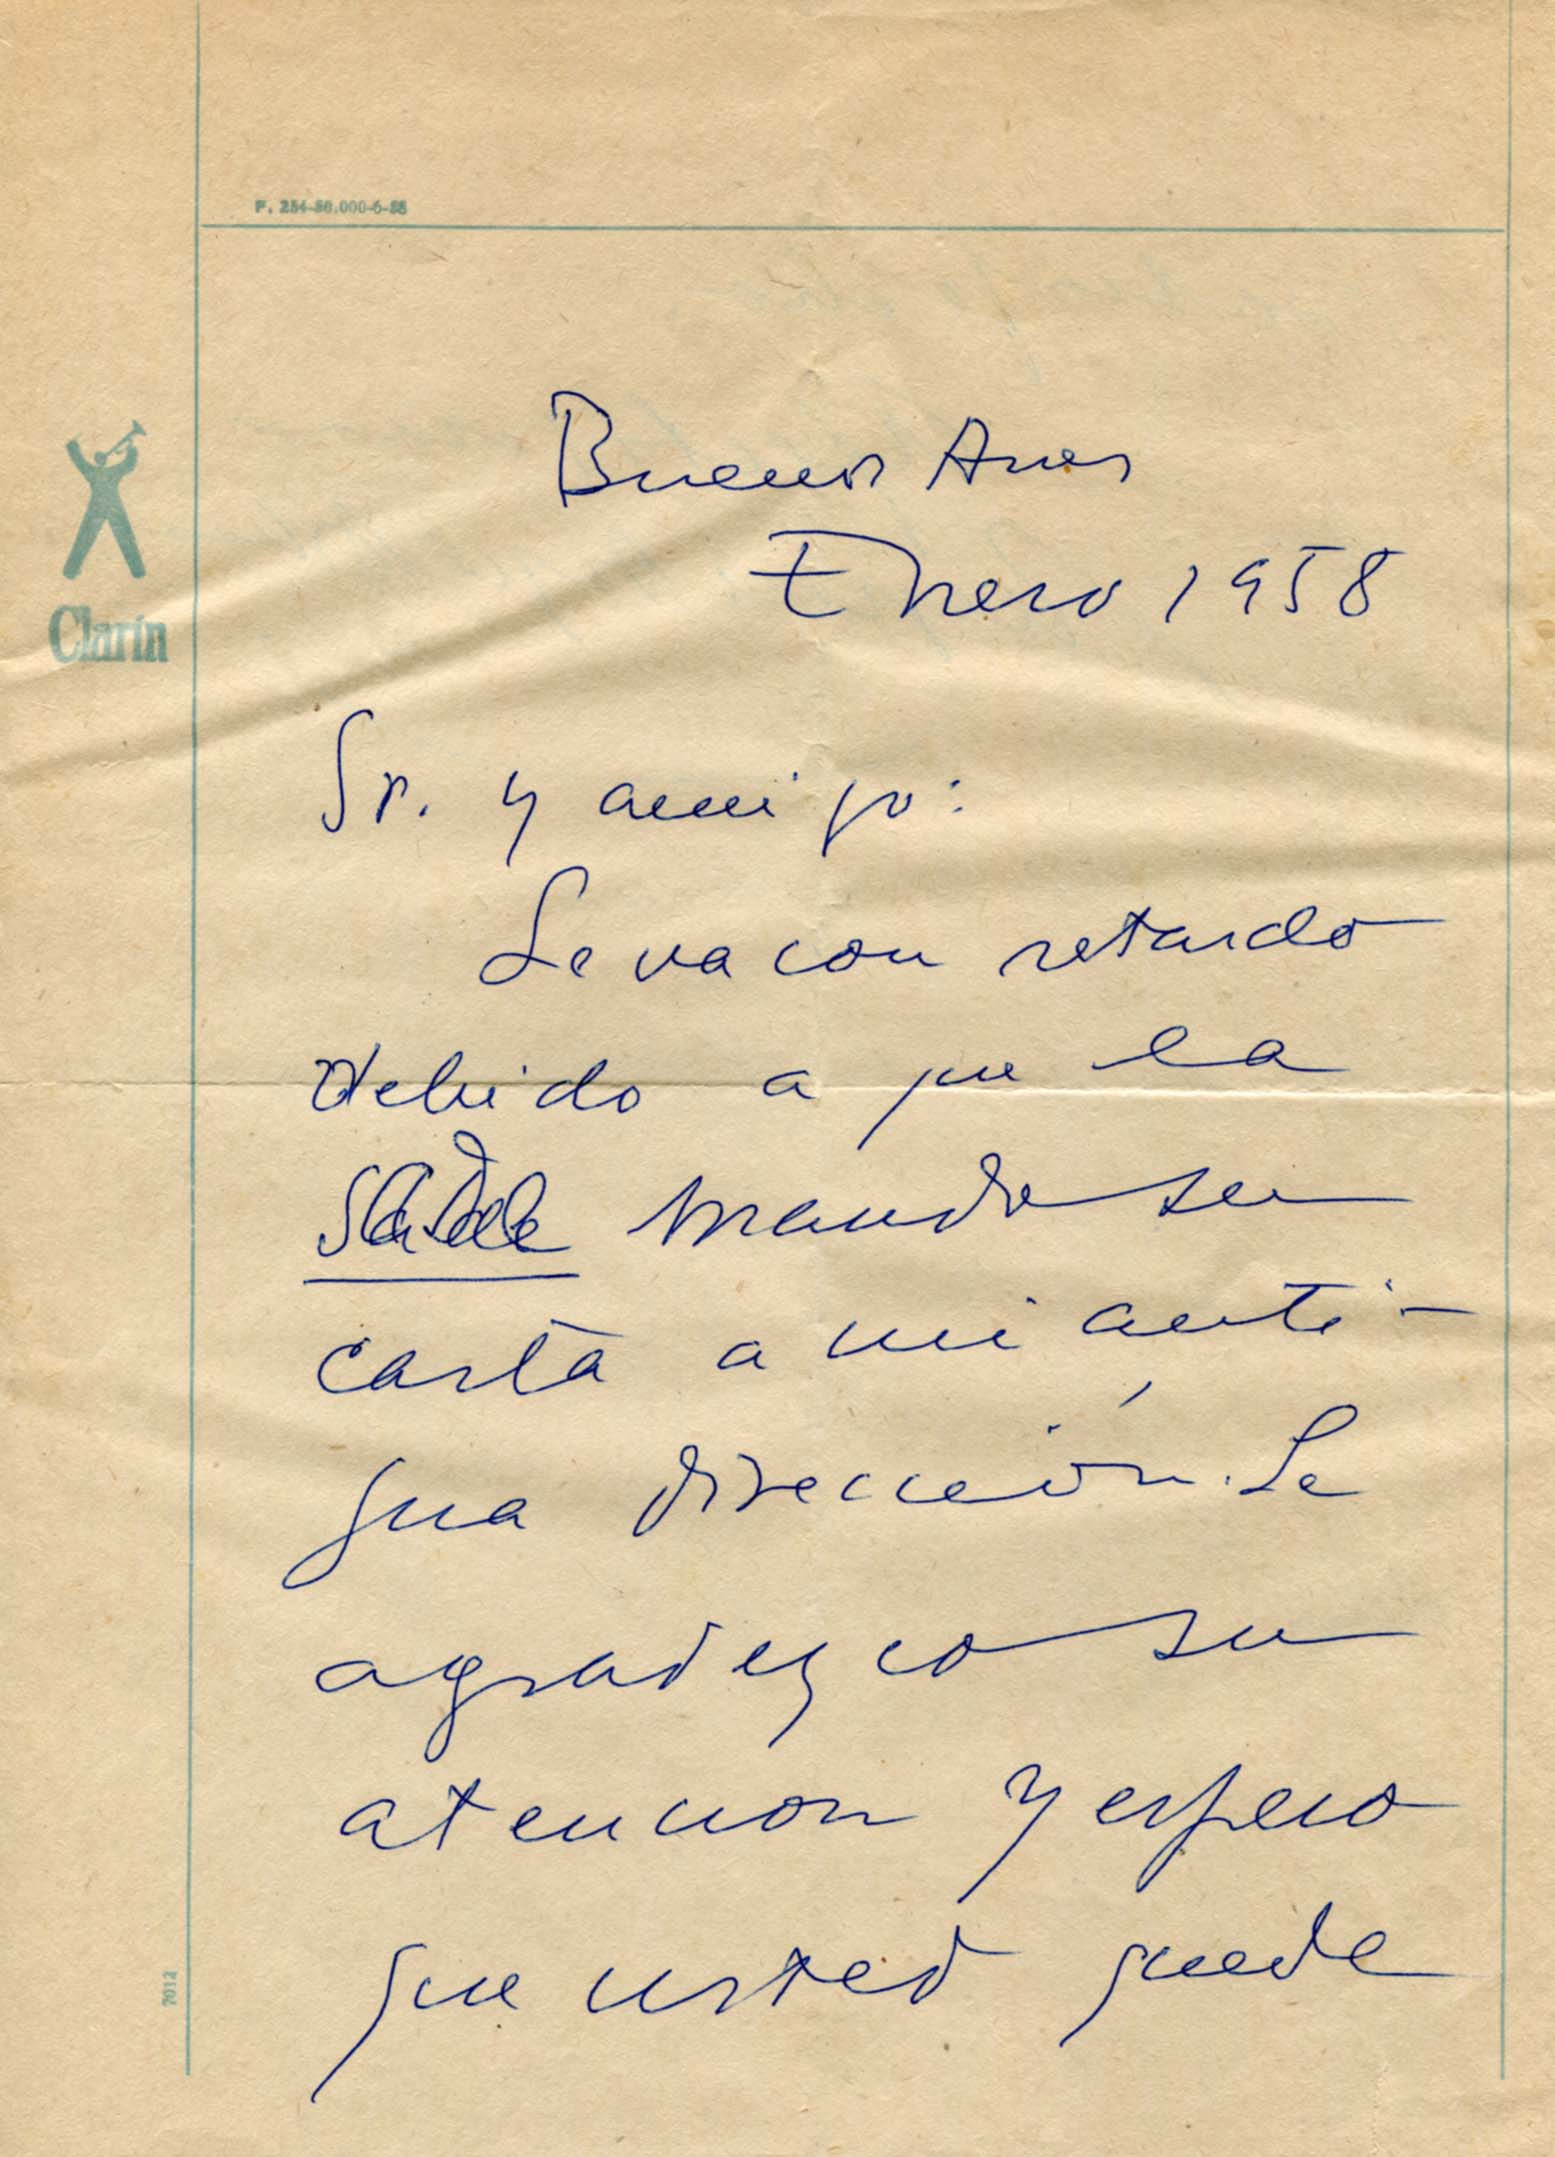 F. 254-50.000-6-55
Clarín
Buenos Aires
Enero 1958
Sr. y amigo:
Le va con retardo
debido a que la
SADE mandó su
carta a mi anti-
gua dirección. Le
agradezco su
atencion y espero
que usted puede
7012